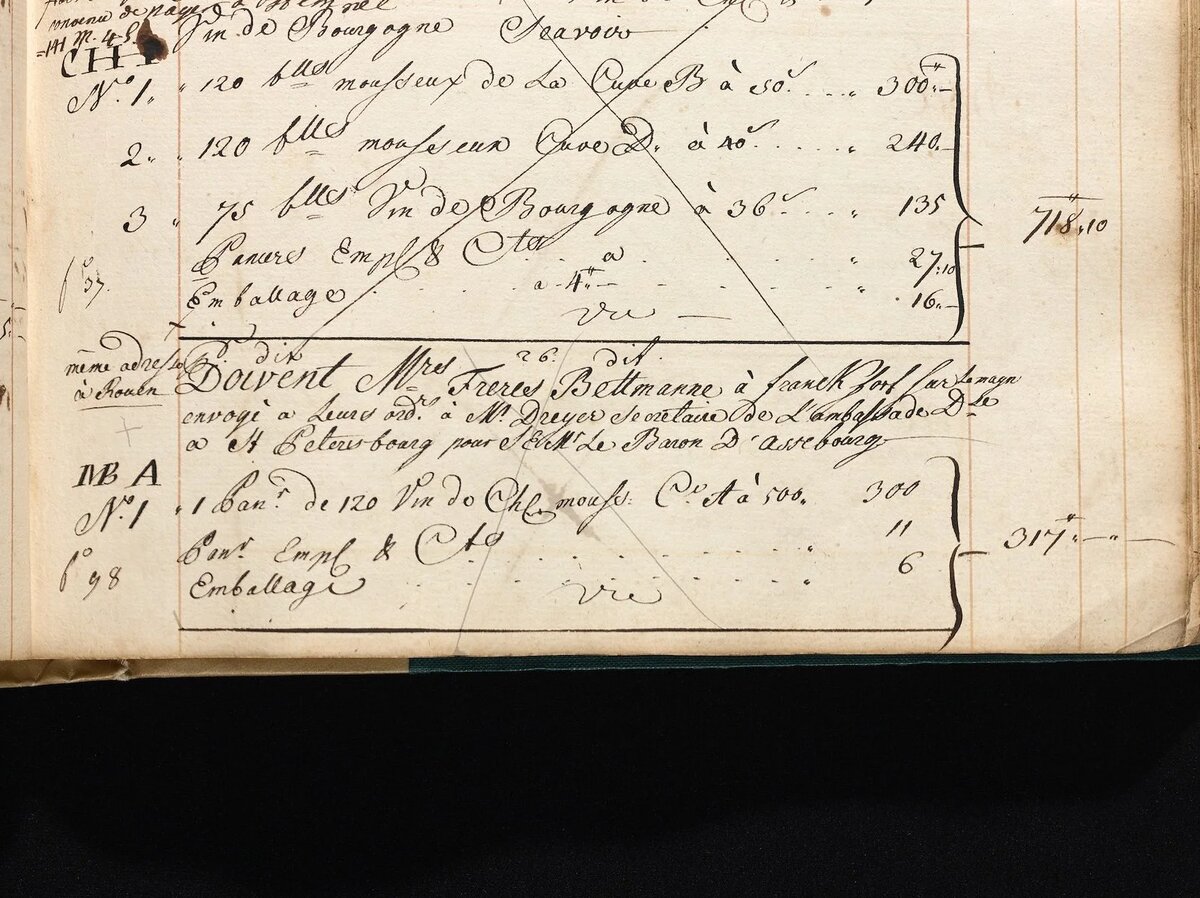 convenu de payer à
=141 M. 4 S.
Vin de Bourgogne Scavoir
CHH
N.º 1,, " 120 blles mousseux de La Cuve B à 50s .... " 300tt"-
2" " 120 blles mousseux Cuve D. à 40s ..... " 240.-
3 " 75 blles Vin de Bourgogne à 36s ... " 135
718tt,,10
Paniers Empl & Cta . . a . . . . " 27,,10
fº 37.
Emballage . . . . a 4tt - . . . . " . 16,,-
vié
dit 26. dit.
même adresse
à Rouen
Doivent Mrs Freres Bettmanne à franckfort sur Lemayn
envoyé a Leurs ord.re à Mr. Dreyer Secretaire de L'ambassade Dle
a St Petersbourg pour S E Mr Le Baron D'assebourg
MB A
N.º 1 " 1 Panr. de 120 Vin de Chp mouss: Ce. A à 50s,, 300
Panr. Empl & Cta . . . . . . . . " 11
317tt"-"-
fº 98
Emballage . . . . . . . " 6
vié